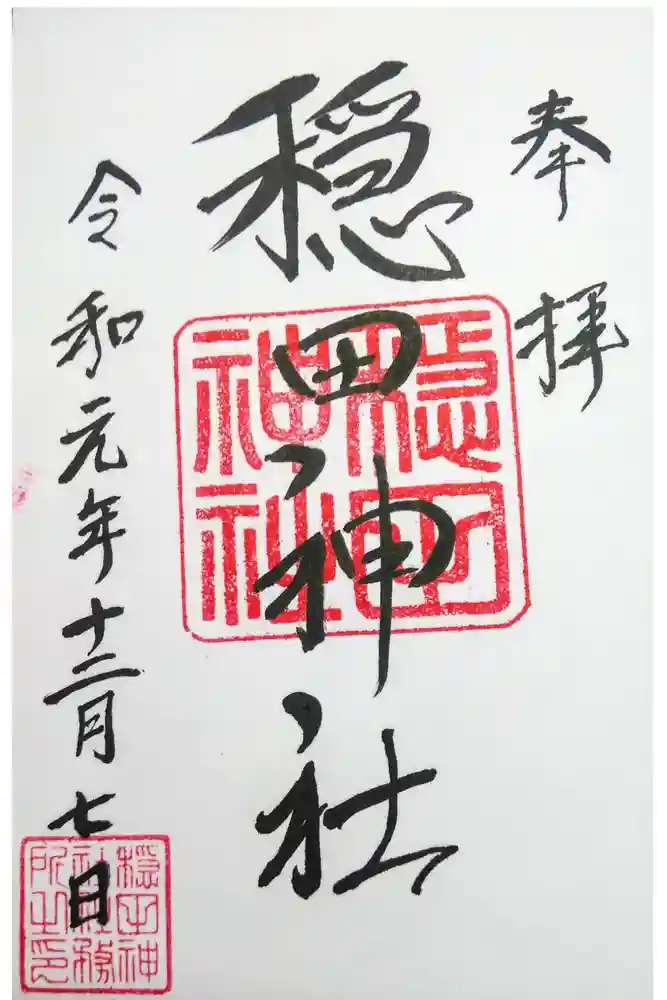 奉拝
穏田神社
穏田
神社
令和元年十二月七日
穏田神
社社務
所之印